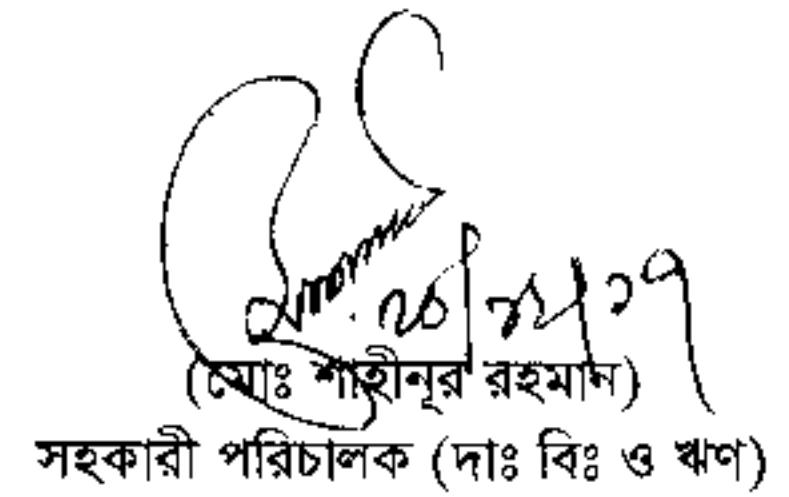 (মোঃ শাহীনূর রহমান)
সহকারী পরিচালক (দাঃ বিঃ ও ঋণ)